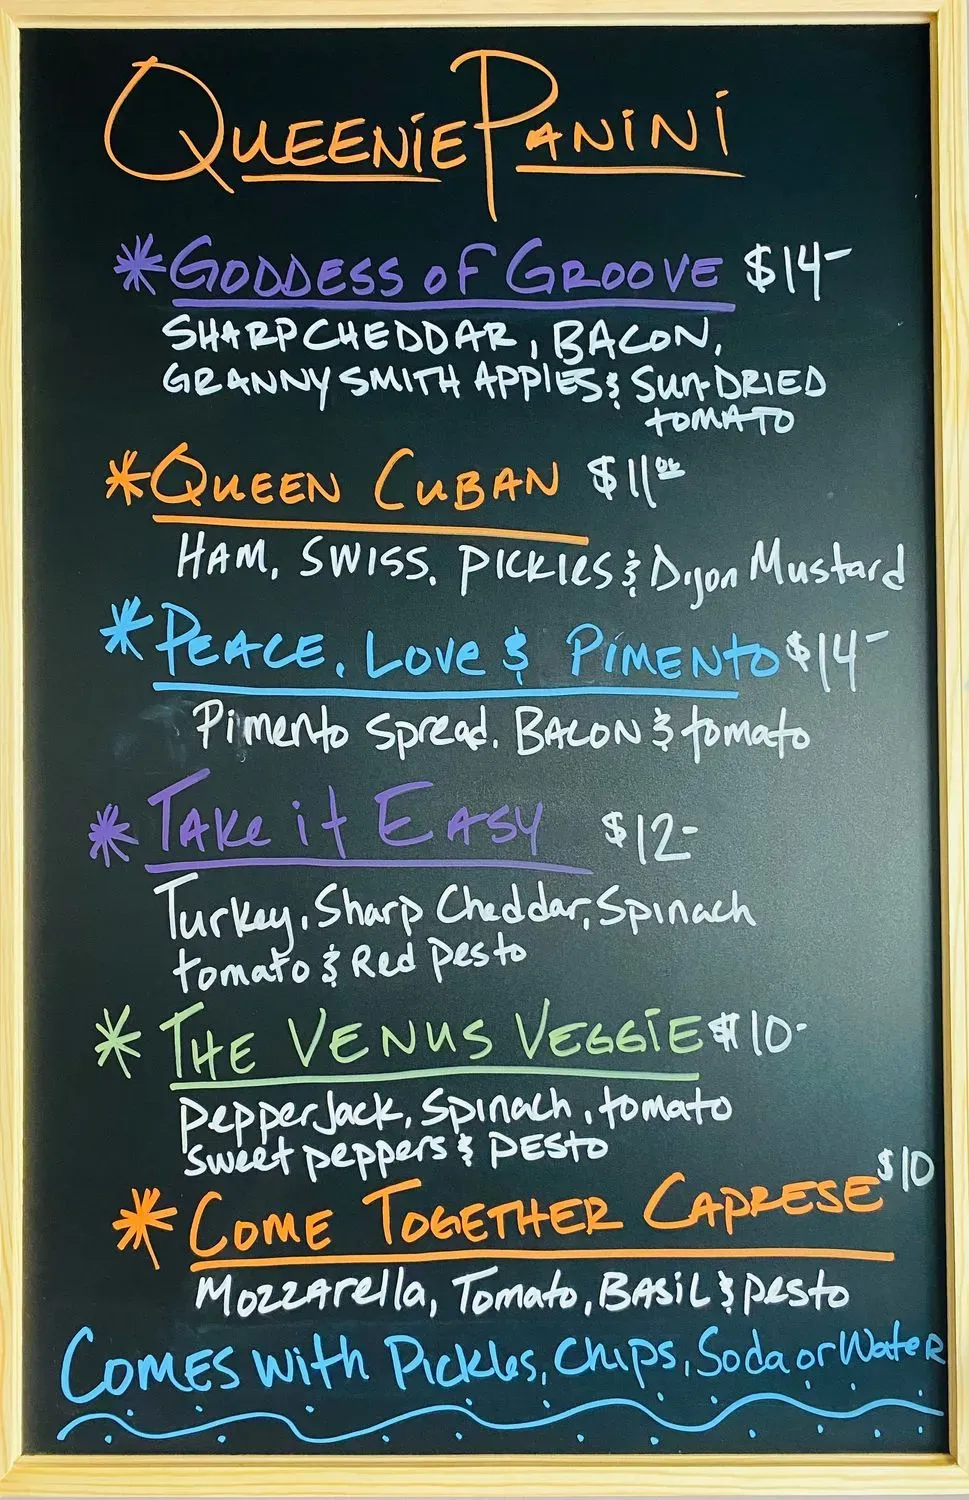 QUEENIE PANINI
*GODDESS OF GROOVE $14-
SHARP CHEDDAR, BACON,
GRANNY SMITH APPLES & SUN-DRIED
TOMATO
*QUEEN CUBAN $11⁰⁰
HAM, SWISS, PICKLES & Dijon Mustard
*PEACE, LOVE & PIMENTO $14-
Pimento Spread, BACON & tomato
*TAKE it EASY $12-
Turkey, Sharp Cheddar, Spinach
tomato & Red Pesto
*THE VENUS VEGGIE $10-
Pepper Jack, Spinach, tomato
Sweet peppers & PESTO
$10
*COME TOGETHER CAPRESE
Mozzarella, Tomato, BASIL & pesto
COMES WITH Pickles, Chips, Soda or Water